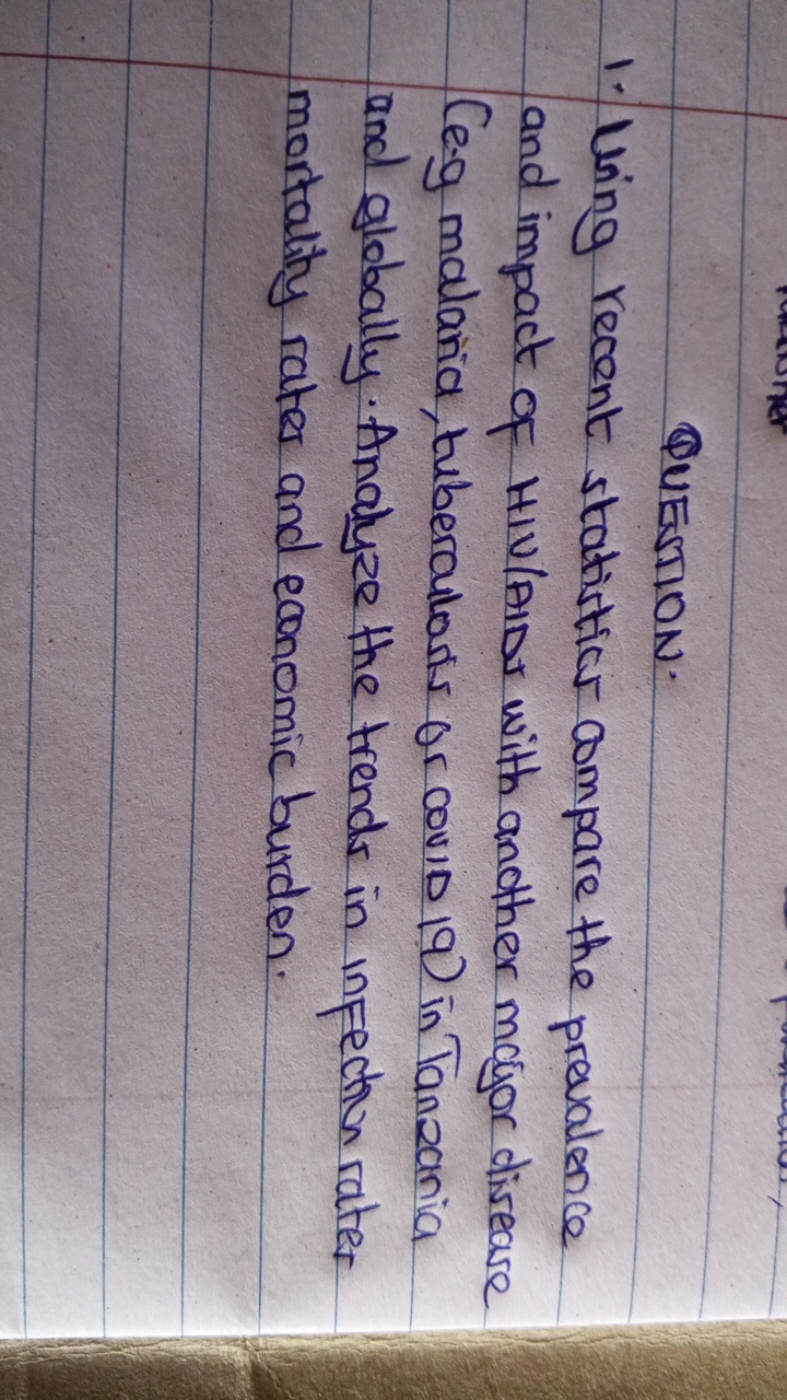 QUESTION.
1. Using recent statistics compare the prevalence
and impact of HIV/AIDs with another major disease
(e.g malaria, tuberculosis or covid 19) in Tanzania
and globally. Analyze the trends in infection rates
mortality rates and economic burden.